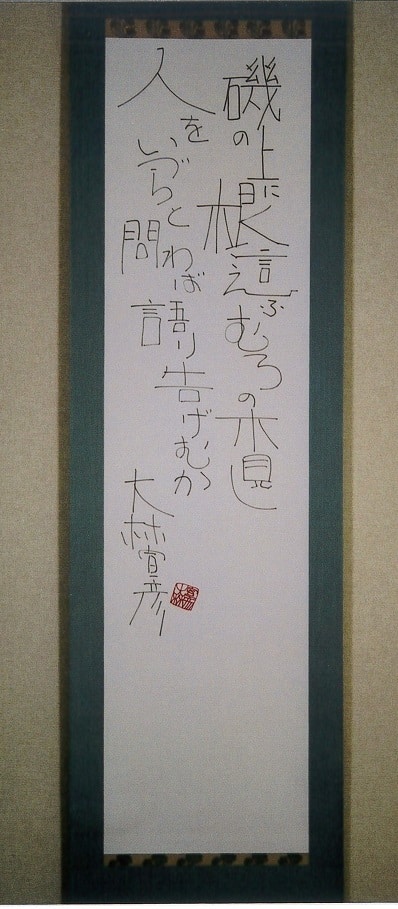 磯の上に根這ふむろの木見し
人をいづらと問わば語り告げむか
大林宣彦